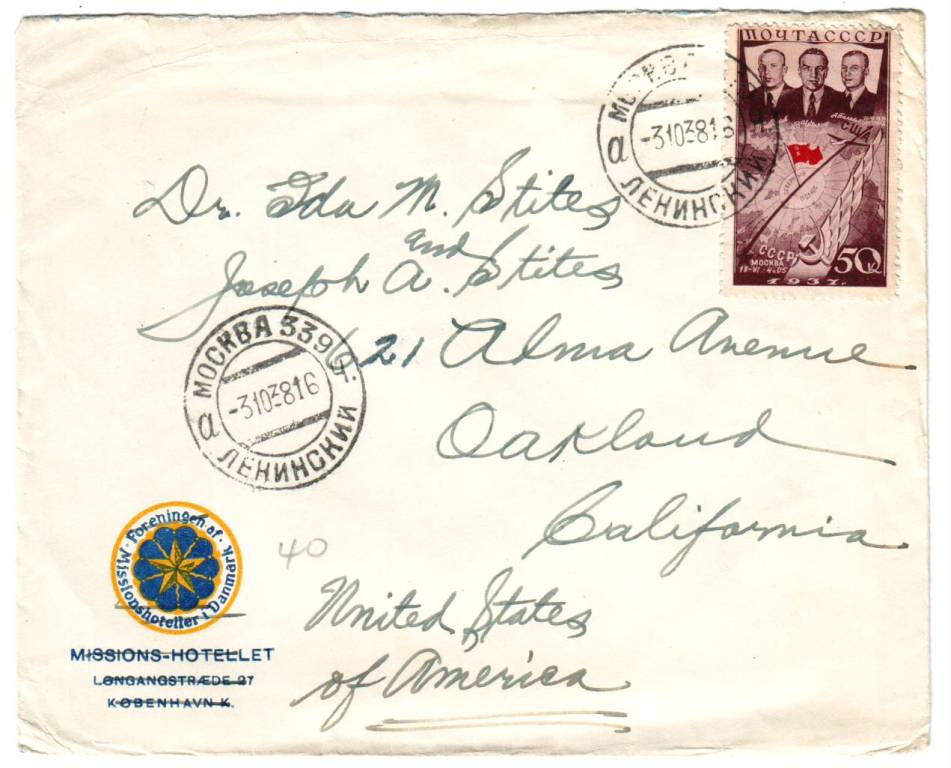 ПОЧТА СССР
США
СССР
МОСКВА
50 К
1937.
МОСКВА
а -3103816
ЛЕНИНСКИЙ
Dr. Ida M. Stites
and
Joseph A. Stites
621 Alma Avenue
Oakland
California
United States
of America
МОСКВА 339 Ч.
а -3103816
ЛЕНИНСКИЙ
40
Foreningen af
Missionshoteller i Danmark
MISSIONS-HOTELLET
LØNGANGSTRÆDE 27
KØBENHAVN K.